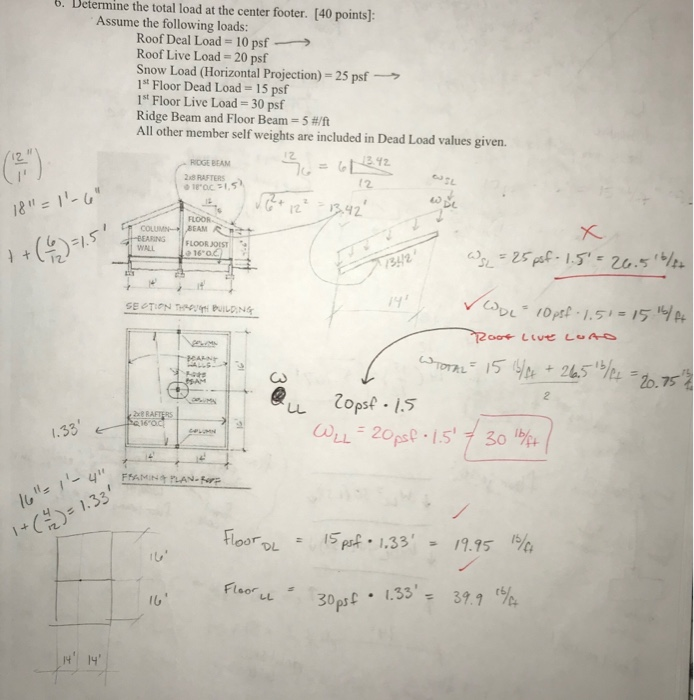 6. Determine the total load at the center footer. [40 points]:
Assume the following loads:
Roof Deal Load = 10 psf ⟶
Roof Live Load = 20 psf
Snow Load (Horizontal Projection) = 25 psf ⟶
1st Floor Dead Load = 15 psf
1st Floor Live Load = 30 psf
Ridge Beam and Floor Beam = 5 #/ft
All other member self weights are included in Dead Load values given.
(12"/1')
18" = 1'-6"
1 + (6/12) = 1.5'
RIDGE BEAM
2x8 RAFTERS
@ 18" O.C. = 1.5'
12
FLOOR BEAM
COLUMN
BEARING WALL
FLOOR JOIST
@ 16" O.C.
14' 14'
SECTION THROUGH BUILDING
12/6 = 6 13.42
12
√6² + 12² = 13.42'
ωSL
ωDL
13.42'
14'
X
ωSL = 25 psf · 1.5' = 26.5 lb/ft
✓ ωDL = 10 psf · 1.5' = 15 lb/ft
ROOF LIVE LOAD
ωTOTAL = 15 lb/ft + 26.5 lb/ft = 20.75 lb/ft
2
ω LL 20psf · 1.5
ωLL = 20psf · 1.5' = 30 lb/ft
COLUMN
BEARING WALLS
BEAM
COLUMN
2x8 RAFTERS
@ 16" O.C.
COLUMN
14' 14'
FRAMING PLAN-ROOF
1.33'
16" = 1'-4"
1 + (4/12) = 1.33'
16'
16'
14' 14'
Floor DL = 15 psf · 1.33' = 19.95 lb/ft
Floor LL = 30psf · 1.33' = 39.9 lb/ft